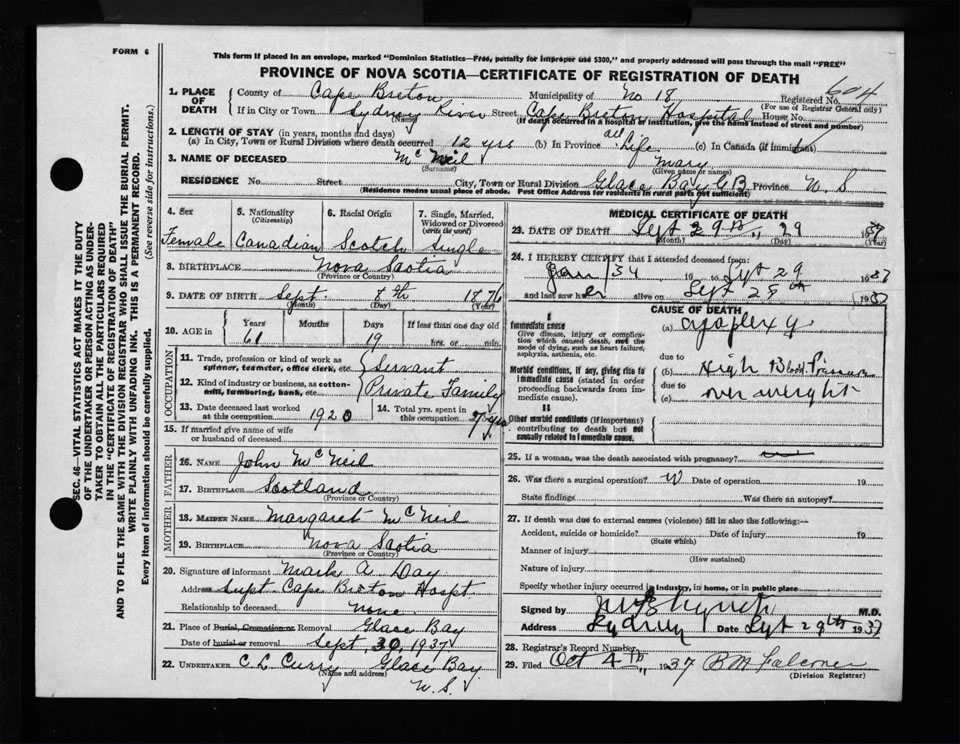 FORM 6
This form if placed in an envelope, marked "Dominion Statistics—Free, penalty for improper use $300," and properly addressed will pass through the mail "FREE"
PROVINCE OF NOVA SCOTIA—CERTIFICATE OF REGISTRATION OF DEATH
SEC. 46—VITAL STATISTICS ACT MAKES IT THE DUTY
OF THE UNDERTAKER OR PERSON ACTING AS UNDER-
TAKER TO OBTAIN ALL THE PARTICULARS REQUIRED
IN THE "CERTIFICATE OF REGISTRATION OF DEATH"
AND TO FILE THE SAME WITH THE DIVISION REGISTRAR WHO SHALL ISSUE THE BURIAL PERMIT.
WRITE PLAINLY WITH UNFADING INK. THIS IS A PERMANENT RECORD.
Every item of information should be carefully supplied. (See reverse side for instructions.)
1. PLACE OF DEATH
County of Cape Breton Municipality of No 18 Registered No. 604
(For use of Registrar General only)
If in City or Town Sydney River Street Cape Breton Hospital House No.
(Name) (If death occurred in a hospital or institution, give the name instead of street and number)
2. LENGTH OF STAY (in years, months and days)
(a) In City, Town or Rural Division where death occurred 12 yrs (b) In Province all Life (c) In Canada (if immigrant)
3. NAME OF DECEASED McNeil Mary
(Surname) (Given name or names)
RESIDENCE No. Street City, Town or Rural Division Glace Bay C B Province N. S
(Residence means usual place of abode. Post Office Address for residents in rural parts not sufficient)
4. Sex Female
5. Nationality (Citizenship) Canadian
6. Racial Origin Scotch
7. Single, Married, Widowed or Divorced (write the word) Single
8. BIRTHPLACE Nova Scotia
(Province or Country)
9. DATE OF BIRTH Sept. 8th 1876
(Month) (Day) (Year)
10. AGE in Years Months Days If less than one day old
61 19 hrs. or min.
OCCUPATION
11. Trade, profession or kind of work as spinner, teamster, office clerk, etc. Servant
12. Kind of industry or business, as cotton-mill, lumbering, bank, etc. Private Family
13. Date deceased last worked at this occupation 1920
14. Total yrs. spent in this occupation yrs
15. If married give name of wife or husband of deceased
FATHER
16. NAME John McNeil
17. BIRTHPLACE Scotland
(Province or Country)
MOTHER
18. MAIDEN NAME Margaret McNeil
19. BIRTHPLACE Nova Scotia
(Province or Country)
20. Signature of informant Mark A Day
Address Supt Cape Breton Hospt.
Relationship to deceased None.
21. Place of Burial, Cremation or Removal Glace Bay
Date of burial or removal Sept. 30, 1937
22. UNDERTAKER C. L. Curry Glace Bay.
(Name and address) N. S.
MEDICAL CERTIFICATE OF DEATH
23. DATE OF DEATH Sept 29th 29 1937
(Month) (Day) (Year)
24. I HEREBY CERTIFY that I attended deceased from:
Jan 34 19 to Sept 29 1937
and last saw her alive on Sept 29th 1937
CAUSE OF DEATH
I
Immediate cause
Give disease, injury or complication which caused death, not the mode of dying, such as heart failure, asphyxia, asthenia, etc.
(a) apoplexy
due to
Morbid conditions, if any, giving rise to immediate cause (stated in order proceeding backwards from immediate cause).
(b) High Blood Pressure
due to
(c) over weight
II
Other morbid conditions (if important) contributing to death but not causally related to immediate cause.
25. If a woman, was the death associated with pregnancy?
26. Was there a surgical operation? Date of operation 19
State findings Was there an autopsy?
27. If death was due to external causes (violence) fill in also the following:—
Accident, suicide or homicide? Date of injury 19
(State which)
Manner of injury
(How sustained)
Nature of injury
Specify whether injury occurred in industry, in home, or in public place
Signed by M.D.
Address Sydney Date Sept 29th 1937
28. Registrar's Record Number
29. Filed Oct 4th 1937 B M Falconer
(Division Registrar)